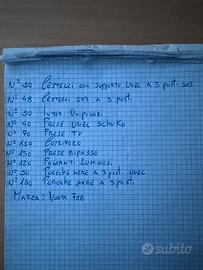 N° 50 CESTELLI CON SUPPORTO UNEL A 3 POSTI 503
N° 48 CESTELLI 503 A 3 POSTI.
N° 50 INTER. UNIPOLARI
N° 40 PRESE UNEL SCHUKO
N° 40 PRESE TV
N° 150 COPRIFORO
N° 150 PRESE BIPASSO
N° 120 PULSANTI LUMINOSI
N° 50 PLACCHE NERE A 3 POSTI UNEL
N° 150 PLACCHE NERE A 3 POSTI.
MARCA: NUOVA FEB
subito